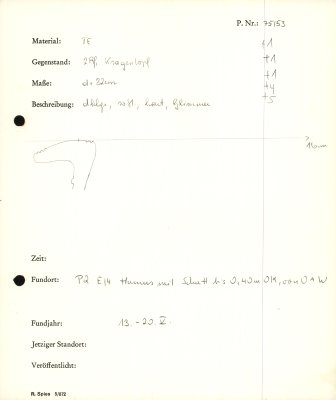 P. Nr.: 75/53
Material: TE +1
Gegenstand: 2 Rf, Kragentopf +1
+1
Maße: d. 22cm +4
Beschreibung: dklgr, mst, hart, Glimmer +5
Zeit:
Fundort: P2 E/4 Humus mit Schutt bis 0,40m
Fundjahr: 13. - 20. V.
Jetziger Standort:
Veröffentlicht:
R. Spies 5/672